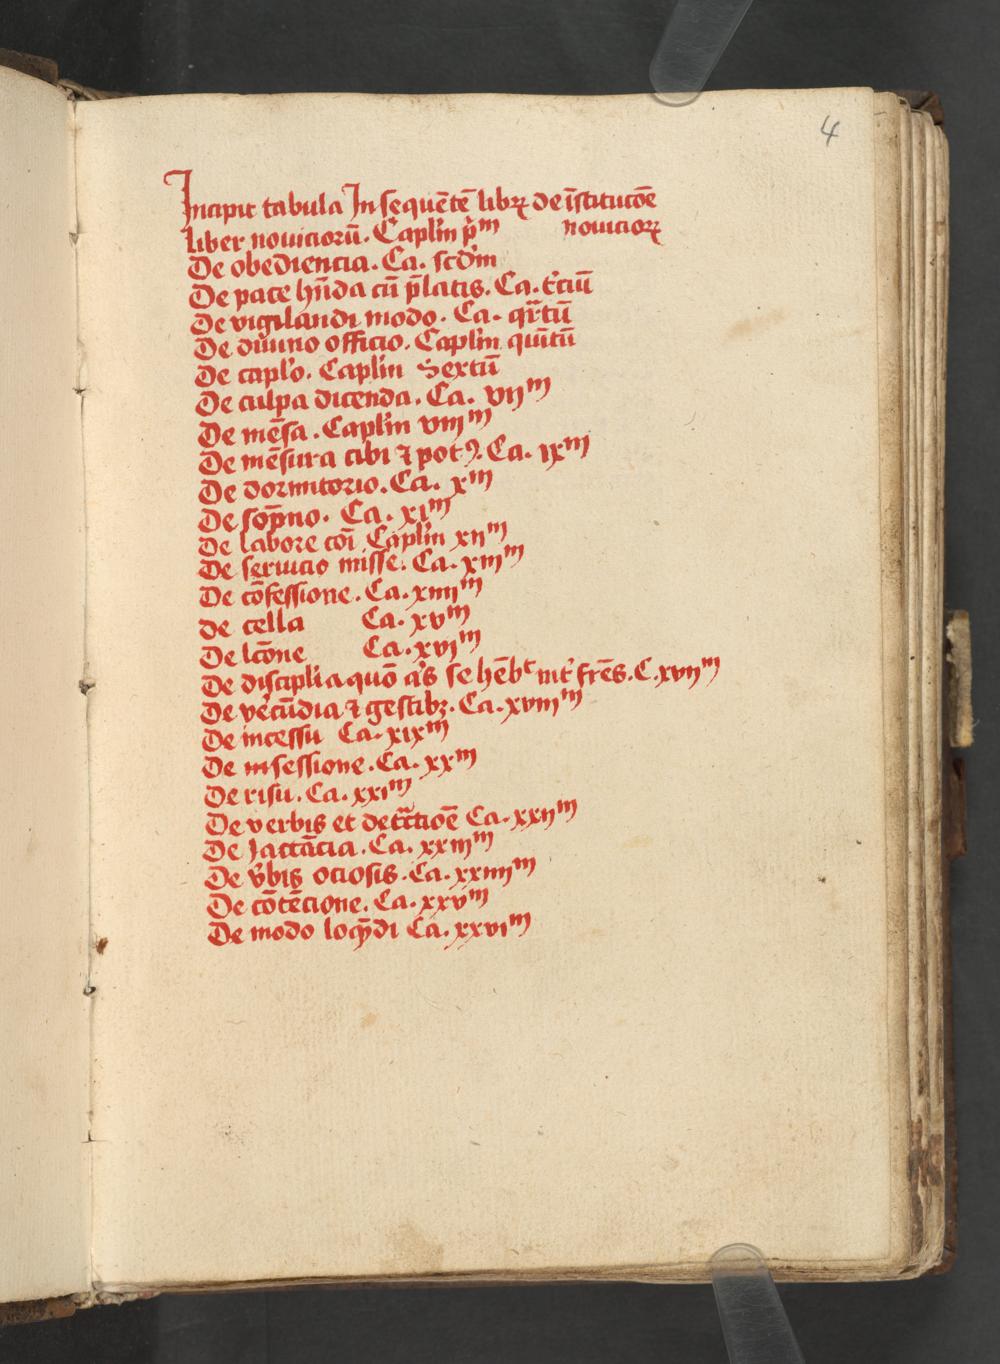 4
Incipit tabula In sequētē libꝝ de īstitucōe
nouicioꝝ
liber nouiciorū. Caplm̄ p̄m
De obediencia. Ca. scd'm
De pace hn̄da cū p̄latis. Ca. t'ciū
De vigilandi modo. Ca. qrtū
De diuino officio. Caplm̄ quītū
De caplo. Caplm̄ Sextū
De culpa dicenda. Ca. vijm
De mēsa. Caplm̄ viijm
De mēsura cibi ⁊ potꝰ. Ca. ixm
De dormitorio. Ca. xm
De sop̄no. Ca. xim
De labore coī Caplm̄ xijm
De seruicio misse. Ca. xiijm
De cōfessione. Ca. xiiijm
de cella Ca. xvm
De lcōne Ca. xvjm
De disciplīa quō q's se hēbt int' frēs. C. xvijm
De v'ecūdia ⁊ gestibꝫ. Ca. xviijm
De incessu Ca. xixm
De insessione. Ca. xxm
De risu. Ca. xxim
De verbis et detc̄tioē Ca. xxijm
De Jactācia. Ca. xxiijm
De v'bis ociosis. Ca. xxiiijm
De cōtēcione. Ca. xxvm
De modo loqn̄di Ca. xxvim